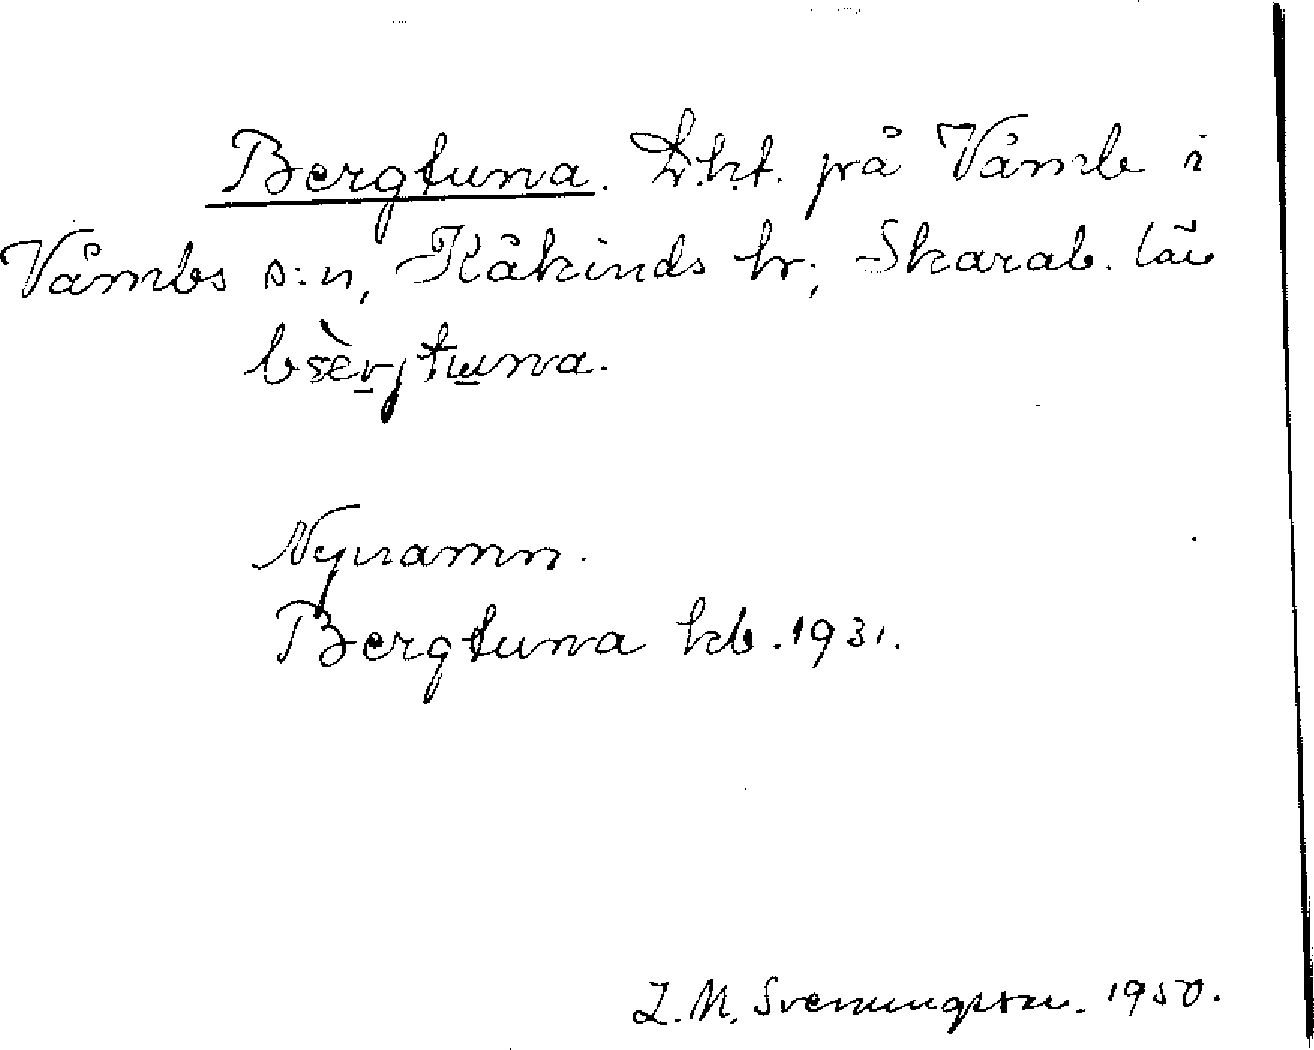 Bergtuna. Lht. på Våmb i
Våmbs s:n, Kåkinds hr; Skarab. län
bsèrjtuna.
Nynamn.
Bergtuna kb. 1931.
Z. M. Svenungsson. 1950.